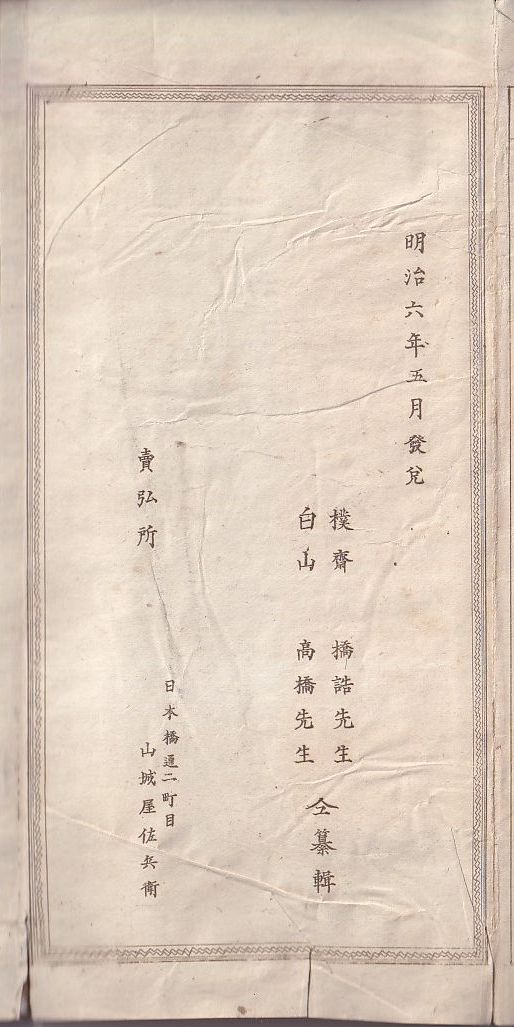 明治六年五月發兌
樸齋 橋誥先生
白山 高橋先生
仝纂輯
賣弘所
日本橋通二町目
山城屋佐兵衛